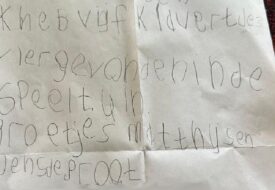 k heb vijf klavertjes
vier gevonden in de
speeltuin
grootjes matthijsen
Jens de groot